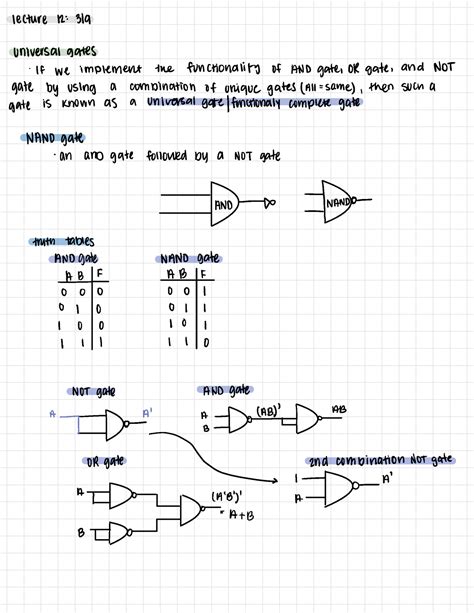 lecture 12: 3/9
universal gates
· If we implement the functionality of AND gate, OR gate, and NOT
gate by using a combination of unique gates (All = same), then such a
gate is known as a universal gate/functionally complete gate
NAND gate
· an and gate followed by a NOT gate
AND NAND
truth tables
AND gate NAND gate
A B F A B F
0 0 0 0 0 1
0 1 0 0 1 1
1 0 0 1 0 1
1 1 1 1 1 0
NOT gate AND gate
A A' A B (AB)' AB
OR gate 2nd combination NOT gate
A B (A'B')' 1 A A'
= A+B